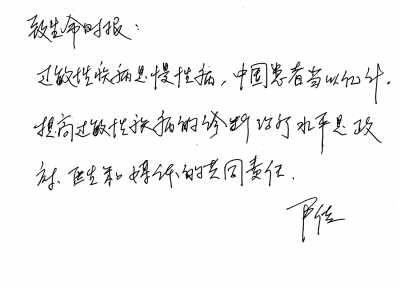 致生命时报：
过敏性疾病是慢性病，中国患者当以亿计．
提高过敏性疾病的诊断治疗水平是政
府、医生和媒体的共同责任．
尹佳